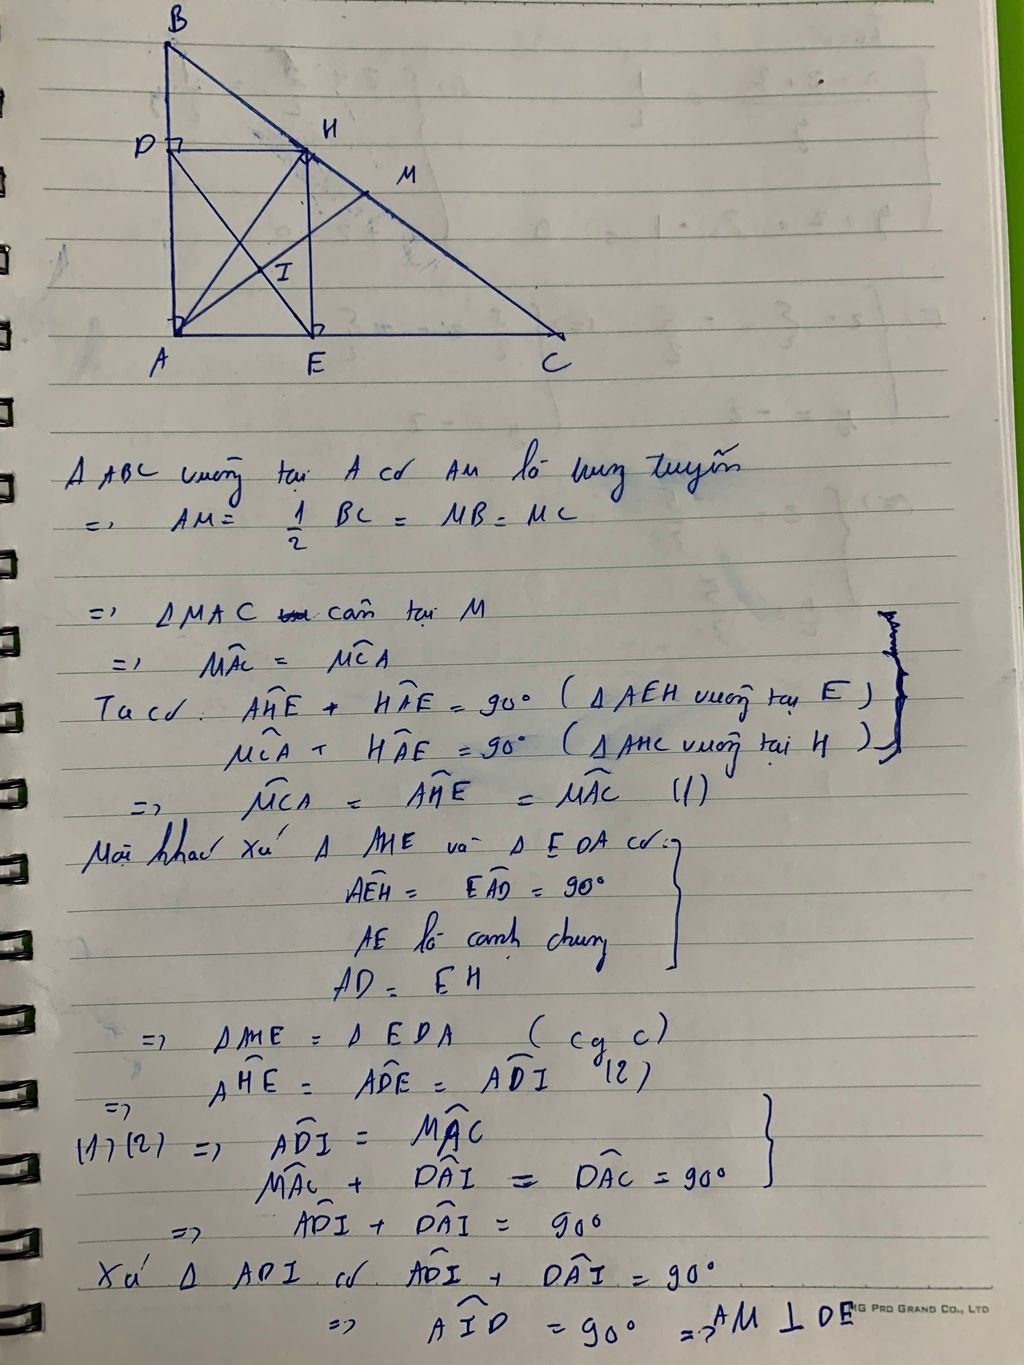 B
D
H
M
I
A
E
C
Δ ABC vuông tại A có AM là trung tuyến
=> AM = 1/2 BC = MB = MC
=> Δ MAC cân tại M
=> MÂC = MĈA
Ta có: AĤE + HÂE = 90° (Δ AEH vuông tại E)
MĈA + HÂE = 90° (Δ AHC vuông tại H)
=> MĈA = AĤE = MÂC (1)
Mặt khác xét Δ AHE và Δ EDA có:
AÊH = EÂD = 90°
AE là cạnh chung
AD = EH
=> Δ AHE = Δ EDA (c g c)
=> AĤE = AD̂E = AD̂I (2)
(1)(2) => AD̂I = MÂC
MÂC + DÂI = DÂC = 90°
=> AD̂I + DÂI = 90°
Xét Δ ADI có AD̂I + DÂI = 90°
=> AÎD = 90° => AM ⊥ DE
MG PRO GRAND CO., LTD